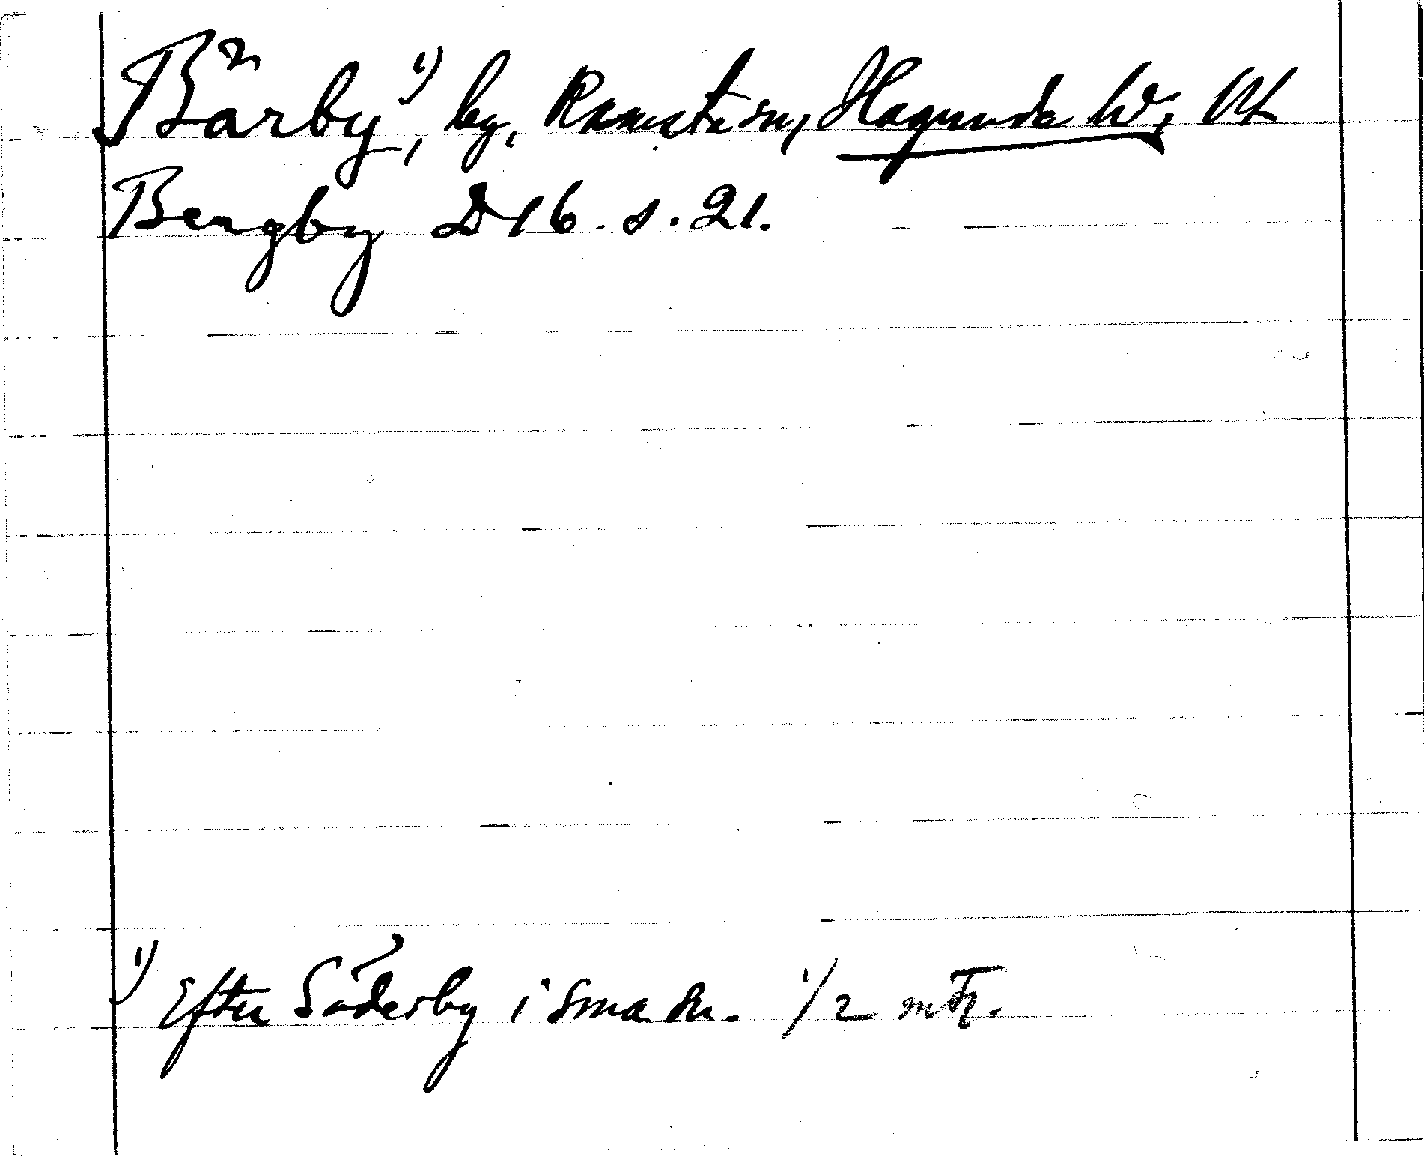 Bärby¹⁾, by, Ramsta sn, Hagunda hd, Upl
Bergby D16. s. 21.
¹⁾ Efter Söderby i sma sn. 1/2 mtl.